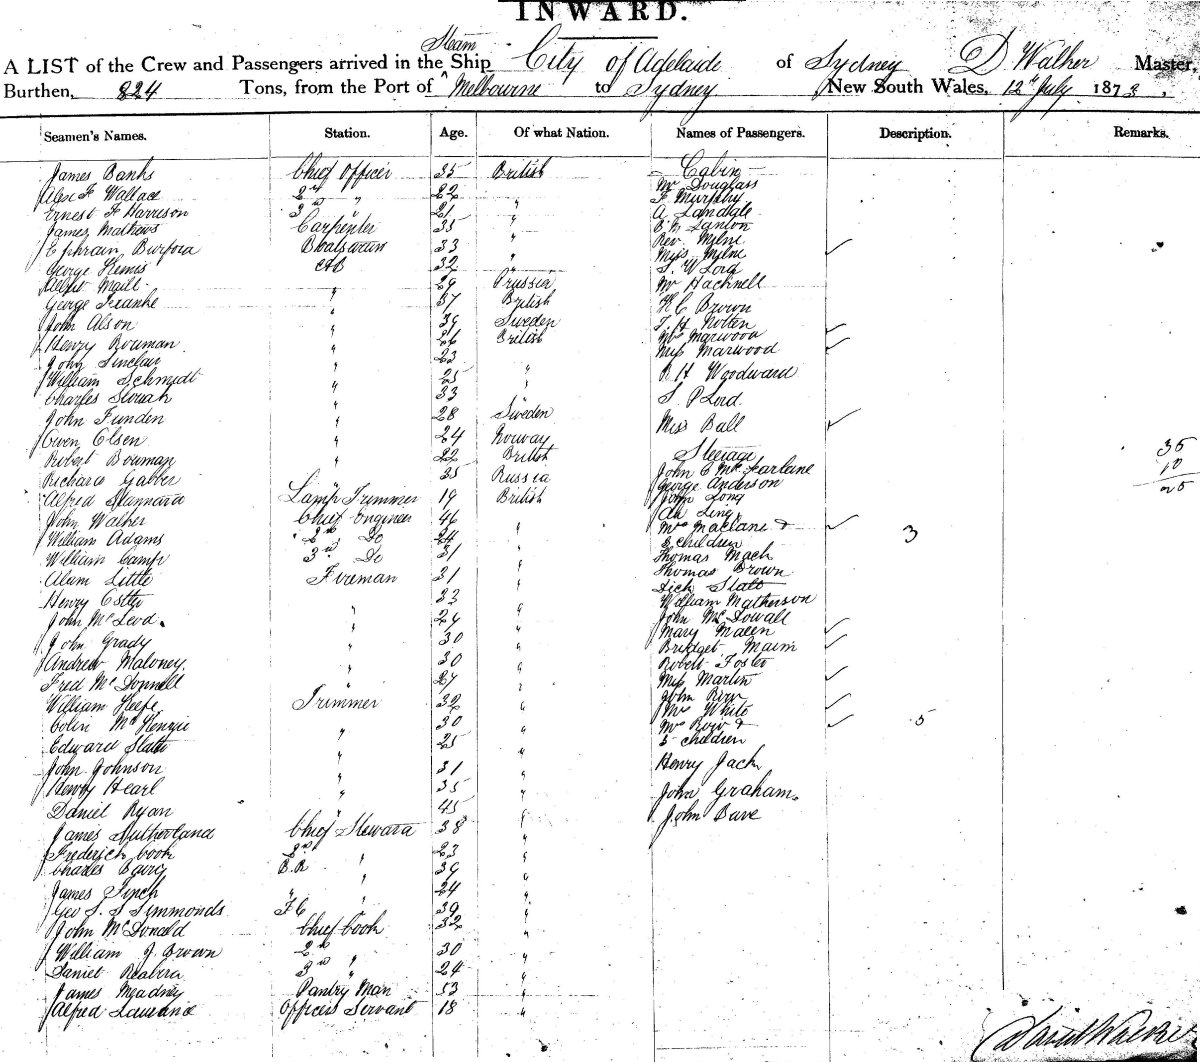 INWARD.
Steam
A LIST of the Crew and Passengers arrived in the Ship City of Adelaide of Sydney D Walker Master,
Burthen, 824 Tons, from the Port of Melbourne to Sydney New South Wales, 12th July 187
Seamen's Names. Station. Age. Of what Nation. Names of Passengers. Description. Remarks.
James Banks Chief Officer 35 British Cabin
Alex F Wallace 2nd " 22 Mr Douglass
Ernest F Harreson 3rd " 21 " F Murphy
James Mathews Carpenter 35 " A Landale
Ephraim Burford Boatswain 33 " Rev. Milne
George Kemis AB 32 " Miss Milne
S. W Lord
Alfst Maill " 29 Prussia Mr Hacknell
George Freanke " 37 British H C Brown
John Alson " 39 Sweden T. H Notten
Henry Rouman " 26 British Mrs Marwood
John Sinclair " 23 Miss Marwood
William Schmidt " 25 " R H Woodward
Charles " 33 " S P Lord
John Funden " 28 Sweden
Owen Olsen " 24 Norway Miss Ball
Robert Bowman " 22 British Steerage 35
Richard Gabber " 25 Russia John C McFarleine 10
George Anderson 25
Alfred Stannard Lamp Trimmer 19 British John Long
John Walker Chief Engineer 46 " Ah Ling
William Adams 2nd Do 24 " Mrs Maclane & 3
3 children
William Camp 3rd Do 31 " Thomas Mack
Alam Little Fireman 31 " Thomas Brown
Dick Statt
Henry Estto " 33 " William Matherson
John McLeod " 24 " John McDowall
John Grady " 30 " Mary Maeen
Andrew Maloney " 30 " Bridget Maim
Robert Foster
Fred McDonnell " 27 " Miss Martin
William Keefe Trimmer 32 " John
Mrs White
Colin McKenzie " 30 " Mrs & 5
Edward Slatto " 25 " 5 children
John Johnson " 31 " Henry Jack
Henry Hearl " 35 " John Graham
Daniel Ryan " 45 " John Dave
James Sutherland Chief Steward 38 "
Frederick Cook 2nd " 23 "
Charles B.R " 39 "
James Finch " " 24 "
Geo S. S Simmonds F C " 39 "
John McDonald Chief Cook 32 "
William J. Brown 2nd " 30 "
Daniel 3rd " 24 "
James Meadney Pantry Man 53 "
Alfred Laurence Officers Servant 18 "
David Walker